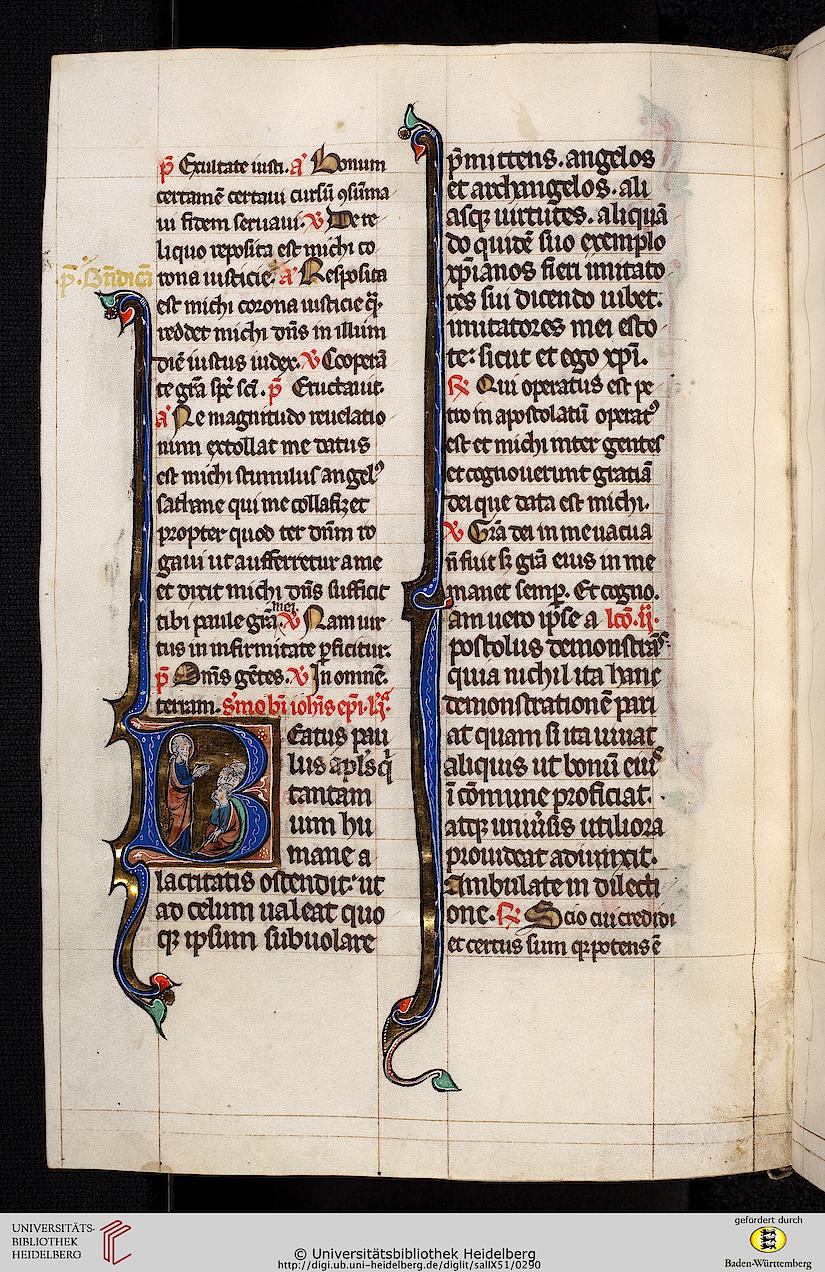 p̄ Exultate iusti. a̕ Bonum
certamē certaui cursū ꝯsūma
ui fidem seruaui. ꝟ De re
liquo reposita est michi co
p̄. Bn̄dicā
rona iusticie. a̕ Reposita
est michi corona iusticie q̄
reddet michi dn̄s in illum
diē iustus iudex. ꝟ Cooperā
te gr̄a sp̄c sc̄i. p̄ Eructauit.
a̕ Ne magnitudo reuelatio
num extollat me datus
est michi stimulus angelꝰ
sathane qui me collafizet
propter quod ter dn̄m ro
gaui ut aufferretur a me
et dixit michi dn̄s sufficit
mei.
tibi paule gr̄a. ꝟ Nam uir
tus in infirmitate ꝑficitur.
p̄ Om̄s gētes. ꝟ In omnē
terram. s̄mo bī ioh̄is ep̄i. l̄j̄ᵃ
Beatus pau
lus apl̄s q̄
tantam
uim hu
mane a
lacritatis ostendit ut
ad celum ualeat quo
qꝫ ipsum subuolare
p̄mittens. angelos
et archangelos. ali
asqꝫ uirtutes. aliquā
do quidē suo exemplo
xp̄ianos fieri imitato
res sui dicendo iubet.
imitatores mei esto
te: sicut et ego xp̄i.
℞ Qui operatus est pe
tro in apostolatū operatꝰ
est et michi inter gentes
et cognouerunt gratiā
dei que data est michi.
ꝟ Gr̄a dei in me uacua
n̄ fuit sꝫ gr̄a eius in me
manet semꝑ. Et cogno.
am uero ip̄se a lc̄o. ij.
postolus demonstrās
quia nichil ita hanc
demonstrationē pari
at quam si ita uiuat
aliquis ut bonū eiꝰ
ī cōmune proficiat.
atqꝫ uniūsis utiliora
prouideat adiunxit.
Ambulate in dilecti
one. ℞ Scio cui credidi
et certus sum qꝫ potens ē
UNIVERSITÄTS-
BIBLIOTHEK
HEIDELBERG
© Universitätsbibliothek Heidelberg
http://digi.ub.uni-heidelberg.de/diglit/salIX51/0290
gefördert durch
Baden-Württemberg